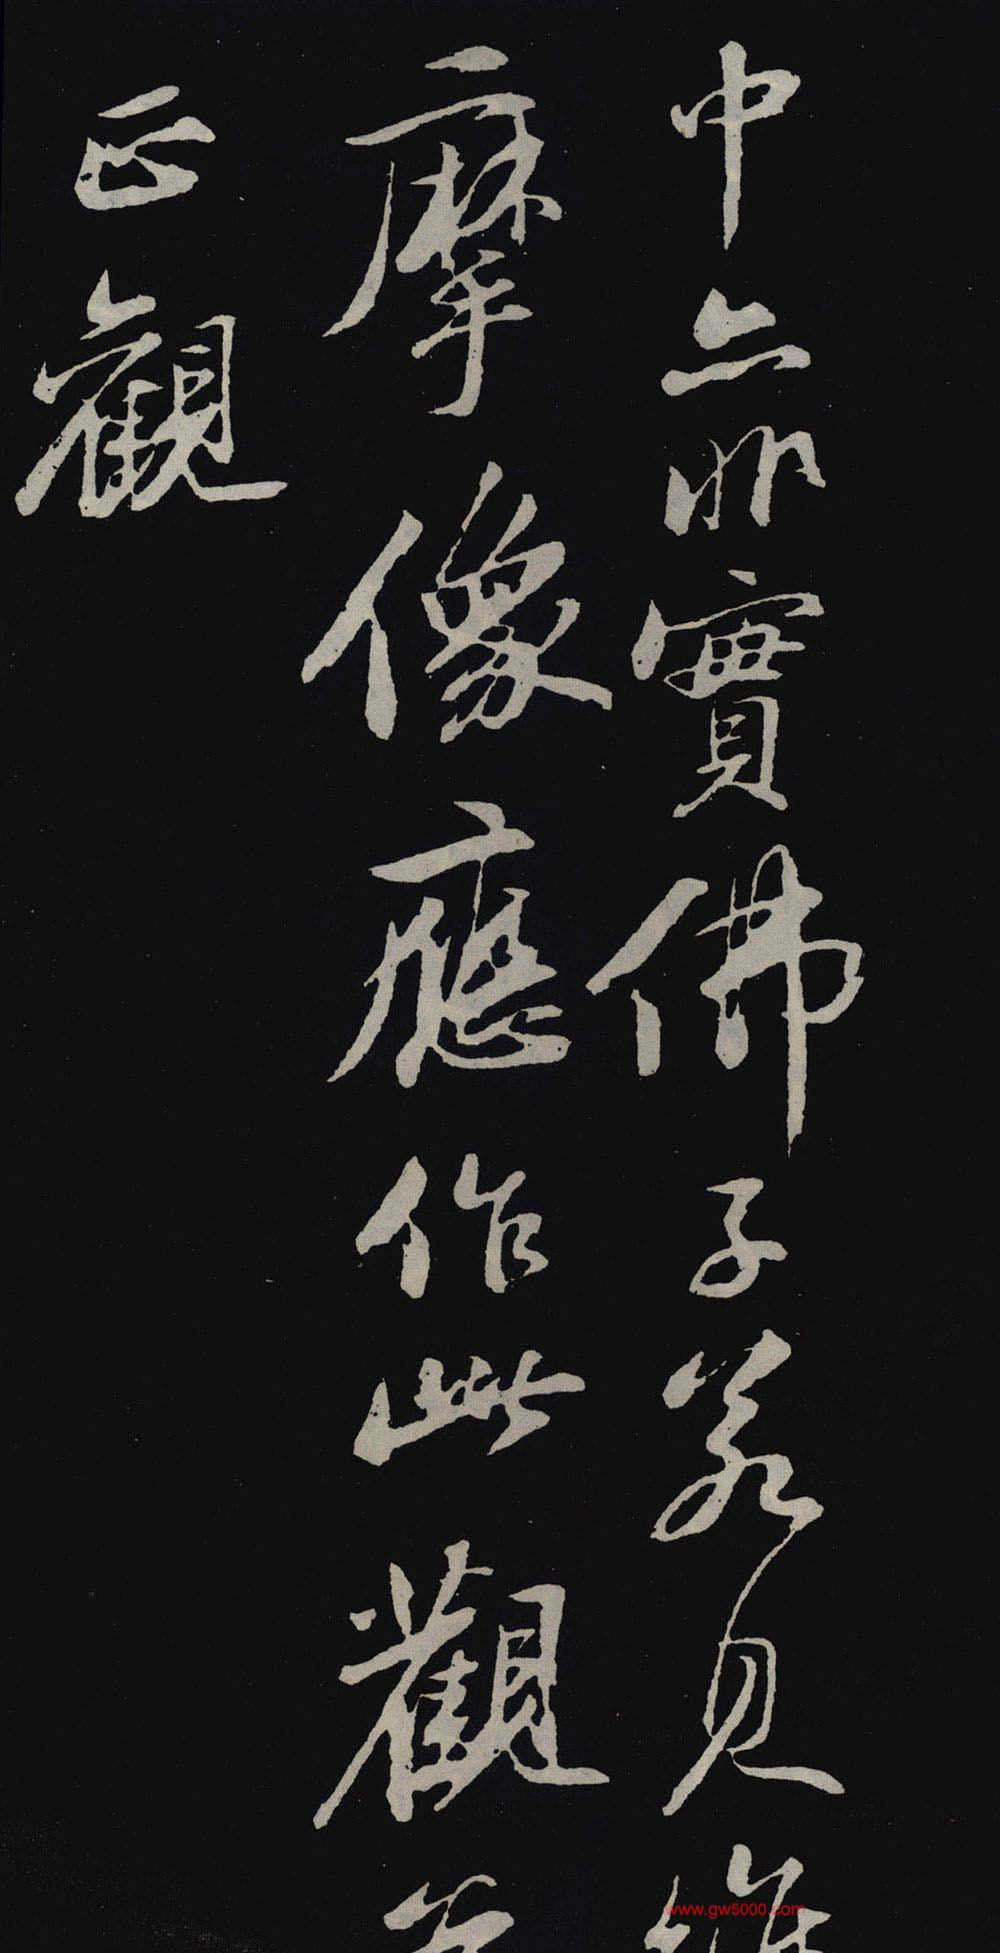 中亦非實佛子若見
摩像應作此觀
正觀
www.gw5000.com